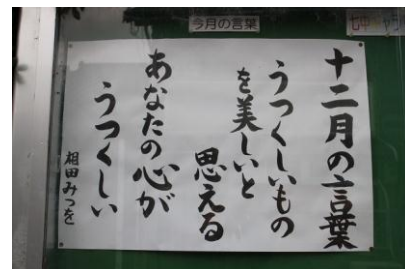 今月の言葉
七中ギャラ
十二月の言葉
うつくしいもの
を美しいと
思える
あなたの心が
うつくしい
相田みつを